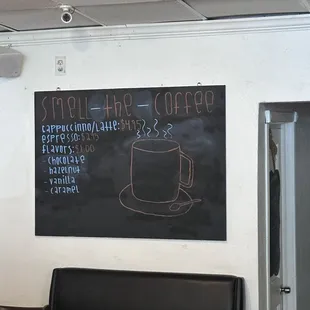 smell-the-coffee
cappuccinno/Latte: $4.95
espresso: $2.95
flavors: $1.00
- chocolate
- hazelnut
- vanilla
- caramel